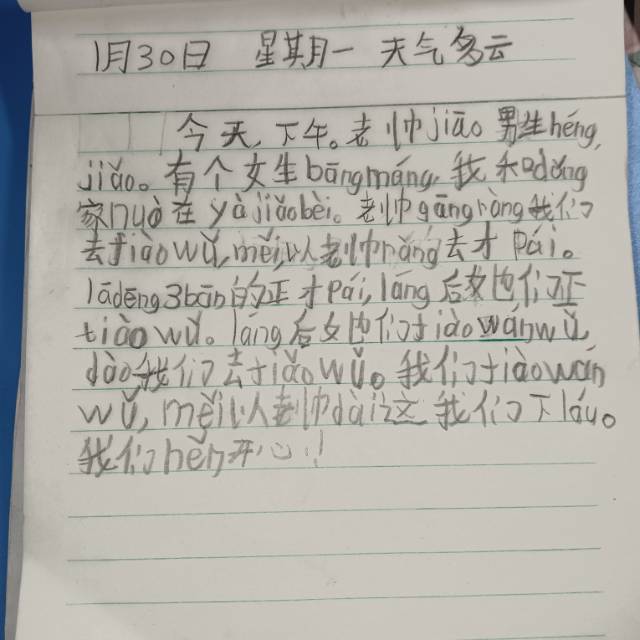 1月30日 星期一 天气多云
今天,下午。老帅jiāo男生héng,
jiǎo。有个女生bāngmáng,我和dǒng
家nuò在yàjiǎobèi。老帅gāngràng我们
去tiàowǔ,měi人老帅ràng去才pái。
lādēng3bān的正才pái,láng后女也们正
tiàowǔ。láng后女也们tiàowánwǔ,
dào我们去tiǎowǔ。我们tiàowán
wǔ,měi人老帅dài这我们下láu。
我们hěn开心!